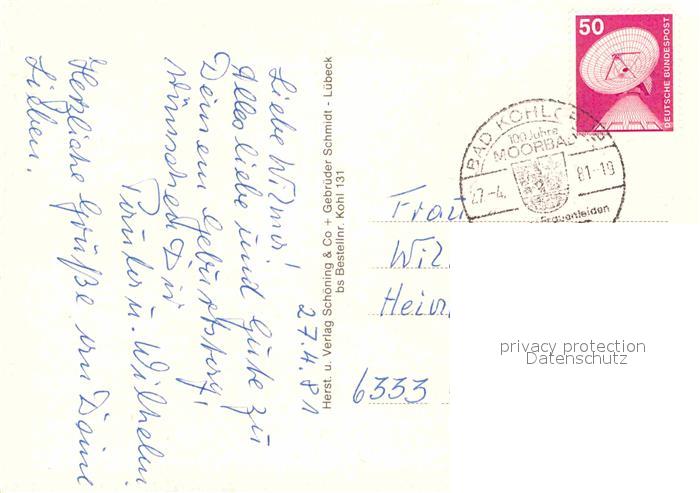 27.4.81
Liebe Wilma!
Alles liebe und Gute zu
Deinem Geburtstag,
wünschen Dir
u. Wilhelm.
Herzliche Grüße an Deine
Lieben.
Herst. u. Verlag Schöning & Co + Gebrüder Schmidt - Lübeck
bs Bestellnr. Kohl 131
50
DEUTSCHE BUNDESPOST
BAD KOHLGRUB
100 Jahre
MOORBAD
27.-4. 81-19
Frauenleiden
Frau
Wil
Hein
6333
privacy protection
Datenschutz